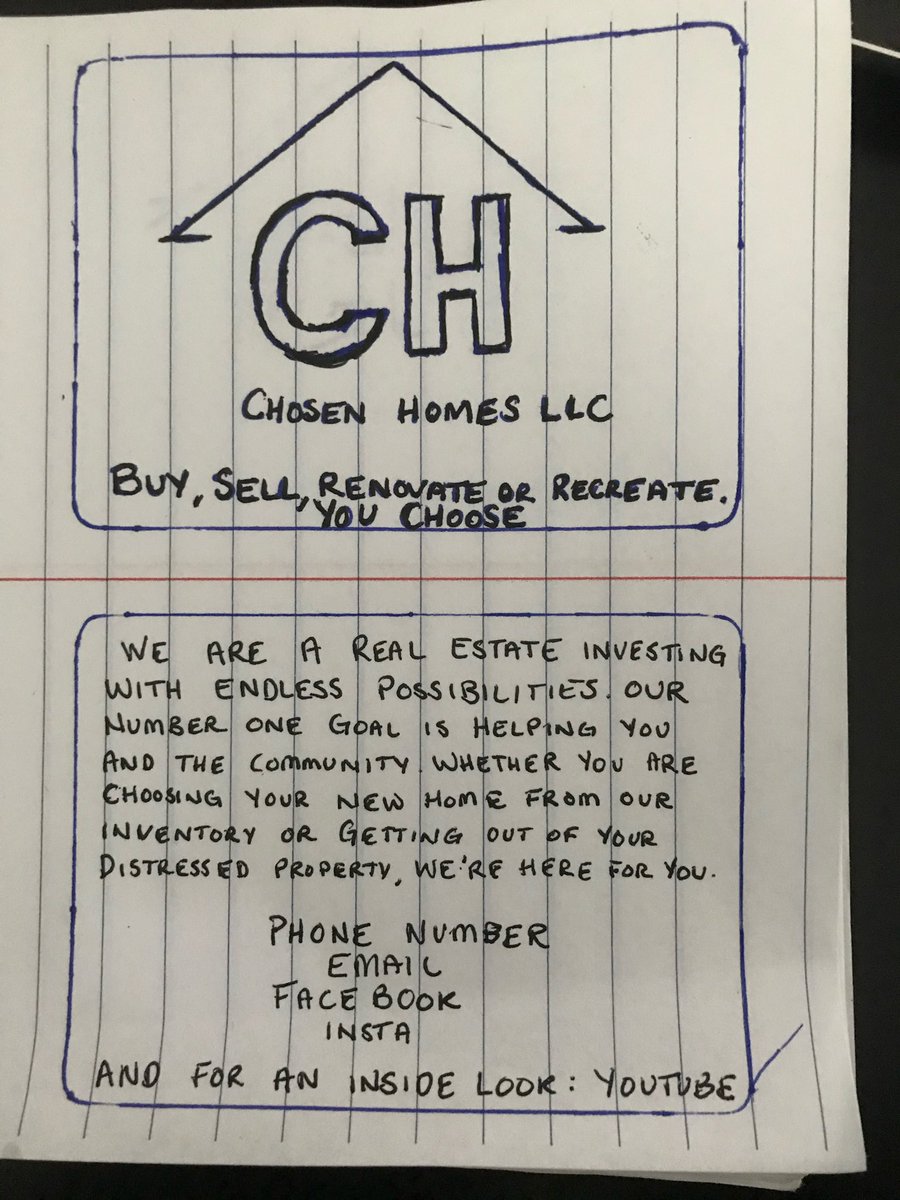 CH
CHOSEN HOMES LLC
BUY, SELL, RENOVATE OR RECREATE.
YOU CHOOSE
WE ARE A REAL ESTATE INVESTING
WITH ENDLESS POSSIBILITIES. OUR
NUMBER ONE GOAL IS HELPING YOU
AND THE COMMUNITY. WHETHER YOU ARE
CHOOSING YOUR NEW HOME FROM OUR
INVENTORY OR GETTING OUT OF YOUR
DISTRESSED PROPERTY, WE'RE HERE FOR YOU.
PHONE NUMBER
EMAIL
FACEBOOK
INSTA
AND FOR AN INSIDE LOOK: YOUTUBE